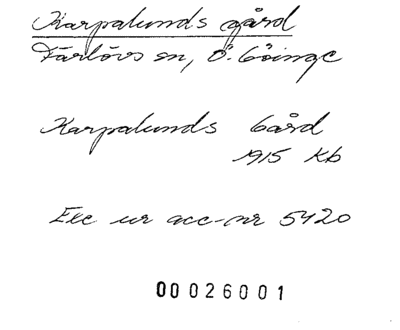 Karpalunds gård
Färlövs sn, Ö. Göinge
Karpalunds Gård
1915 Kb
Exc ur acc-nr 5420
00026001